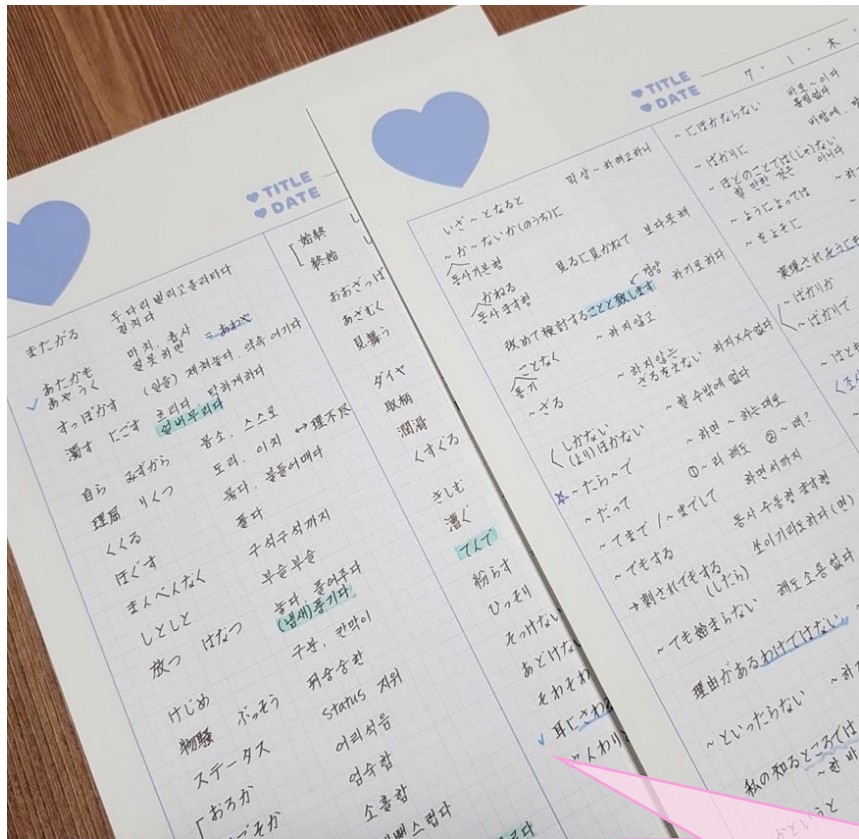 TITLE
DATE
またがる 두 다리 벌리고 올라타다
걸치다
あたかも 마치, 흡사
あやうく 잘못하면
すっぽかす (일을) 제쳐놓다, 약속 어기다
濁す にごす 흐리다, 탁하게 하다
얼버무리다
自ら みずから 몸소, 스스로
理屈 りくつ 도리, 이치 ↔ 理不尽
くくる 묶다, 붙들어매다
ほぐす 풀다
まんべんなく 구석구석까지
しとしと 부슬부슬
放つ はなつ 놓다, 풀어주다
(냄새)풍기다
けじめ 구분, 칸막이
物騒 ぶっそう 뒤숭숭한
ステータス status 지위
おろか 어리석음
엄수함
소홀함
始終
終始
おおざっぱ
あざむく
見舞う
ダイヤ
取柄
潤滑
くすぐる
きしむ
漕ぐ
てんで
紛らす
ひっそり
そっけない
あどけな
そわそわ
耳にさわる
TITLE
DATE 7・1・木
いざ~となると 막상~하려고 하니
~か~ないか(のうちに)
동사기본형
かねる 見るに見かねて 보다못해
동사 ます형
改めて検討することと致します 하기로 하다
ことなく ~하지 않고
동기
~ざる ~하지 않는
ざるをえない 하지 X 수 없다
しかない ~할 수밖에 없다
(より)ほかない
~たら~で ~하면 ~하는대로
~だって ①~라 해도 ②~대?
~てまで/~までして 하면서까지
~でもする 동사 수동형 ます형
→刺されでもする 쏘이기라도하다(면)
(したら)
~ても始まらない 해도 소용없다
理由があるわけではない
~といったらない
私の知るところでは
~한 바
~にほかならない 바로 ~이다
틀림없다
~ばかりに
~ほどのことでは(じゃ)ない
할 만한 것은 아니다
~ようによっては
~をよそに
実現されそうにも
~ばかりか
~ばかりで